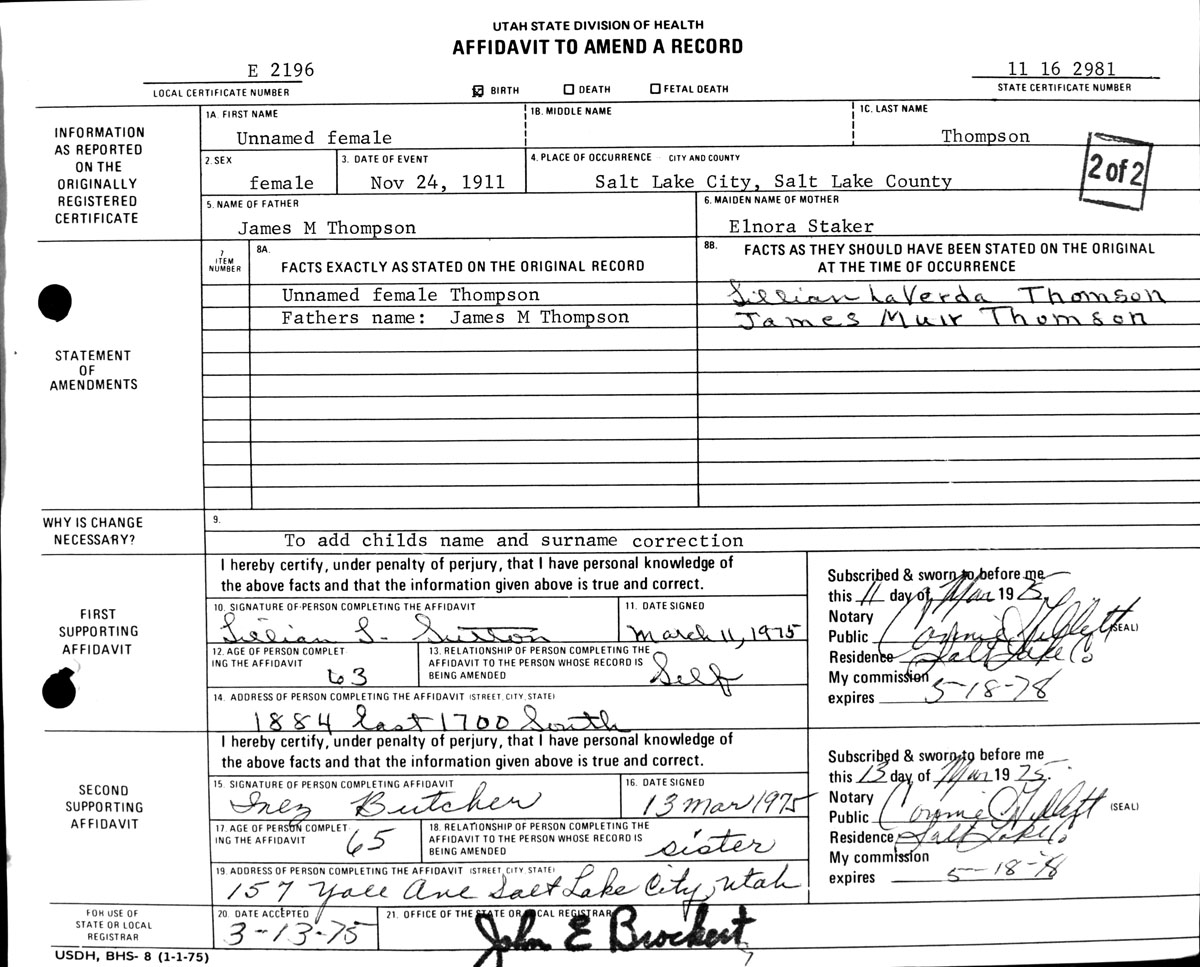 UTAH STATE DIVISION OF HEALTH
AFFIDAVIT TO AMEND A RECORD
E 2196
LOCAL CERTIFICATE NUMBER
☒ BIRTH ☐ DEATH ☐ FETAL DEATH
11 16 2981
STATE CERTIFICATE NUMBER
INFORMATION
AS REPORTED
ON THE
ORIGINALLY
REGISTERED
CERTIFICATE
1A. FIRST NAME
Unnamed female
1B. MIDDLE NAME
1C. LAST NAME
Thompson
2. SEX
female
3. DATE OF EVENT
Nov 24, 1911
4. PLACE OF OCCURRENCE - CITY AND COUNTY
Salt Lake City, Salt Lake County
2 of 2
5. NAME OF FATHER
James M Thompson
6. MAIDEN NAME OF MOTHER
Elnora Staker
STATEMENT
OF
AMENDMENTS
7
ITEM
NUMBER
8A.
FACTS EXACTLY AS STATED ON THE ORIGINAL RECORD
8B.
FACTS AS THEY SHOULD HAVE BEEN STATED ON THE ORIGINAL
AT THE TIME OF OCCURRENCE
Unnamed female Thompson
Lillian LaVerda Thomson
Fathers name: James M Thompson
James Muir Thomson
WHY IS CHANGE
NECESSARY?
9.
To add childs name and surname correction
FIRST
SUPPORTING
AFFIDAVIT
I hereby certify, under penalty of perjury, that I have personal knowledge of
the above facts and that the information given above is true and correct.
10. SIGNATURE OF PERSON COMPLETING THE AFFIDAVIT
Lillian L. Sutton
11. DATE SIGNED
March 11, 1975
12. AGE OF PERSON COMPLET
ING THE AFFIDAVIT
63
13. RELATIONSHIP OF PERSON COMPLETING THE
AFFIDAVIT TO THE PERSON WHOSE RECORD IS
BEING AMENDED
Self
14. ADDRESS OF PERSON COMPLETING THE AFFIDAVIT (STREET, CITY, STATE)
1884 East 1700 South
Subscribed & sworn to before me
this 11 day of Mar 1975.
Notary
Public Connie Willett (SEAL)
Residence Salt Lake Co
My commission
expires 5-18-78
SECOND
SUPPORTING
AFFIDAVIT
I hereby certify, under penalty of perjury, that I have personal knowledge of
the above facts and that the information given above is true and correct.
15. SIGNATURE OF PERSON COMPLETING AFFIDAVIT
Inez Butcher
16. DATE SIGNED
13 Mar 1975
17. AGE OF PERSON COMPLET
ING THE AFFIDAVIT
65
18. RELATIONSHIP OF PERSON COMPLETING THE
AFFIDAVIT TO THE PERSON WHOSE RECORD IS
BEING AMENDED
sister
19. ADDRESS OF PERSON COMPLETING THE AFFIDAVIT (STREET, CITY, STATE)
157 Yale Ave Salt Lake City, Utah
Subscribed & sworn to before me
this 13 day of Mar 1975.
Notary
Public Connie Willett (SEAL)
Residence Salt Lake Co
My commission
expires 5-18-78
FOR USE OF
STATE OR LOCAL
REGISTRAR
20. DATE ACCEPTED
3-13-75
21. OFFICE OF THE STATE OR LOCAL REGISTRAR
John E Brockert
USDH, BHS- 8 (1-1-75)